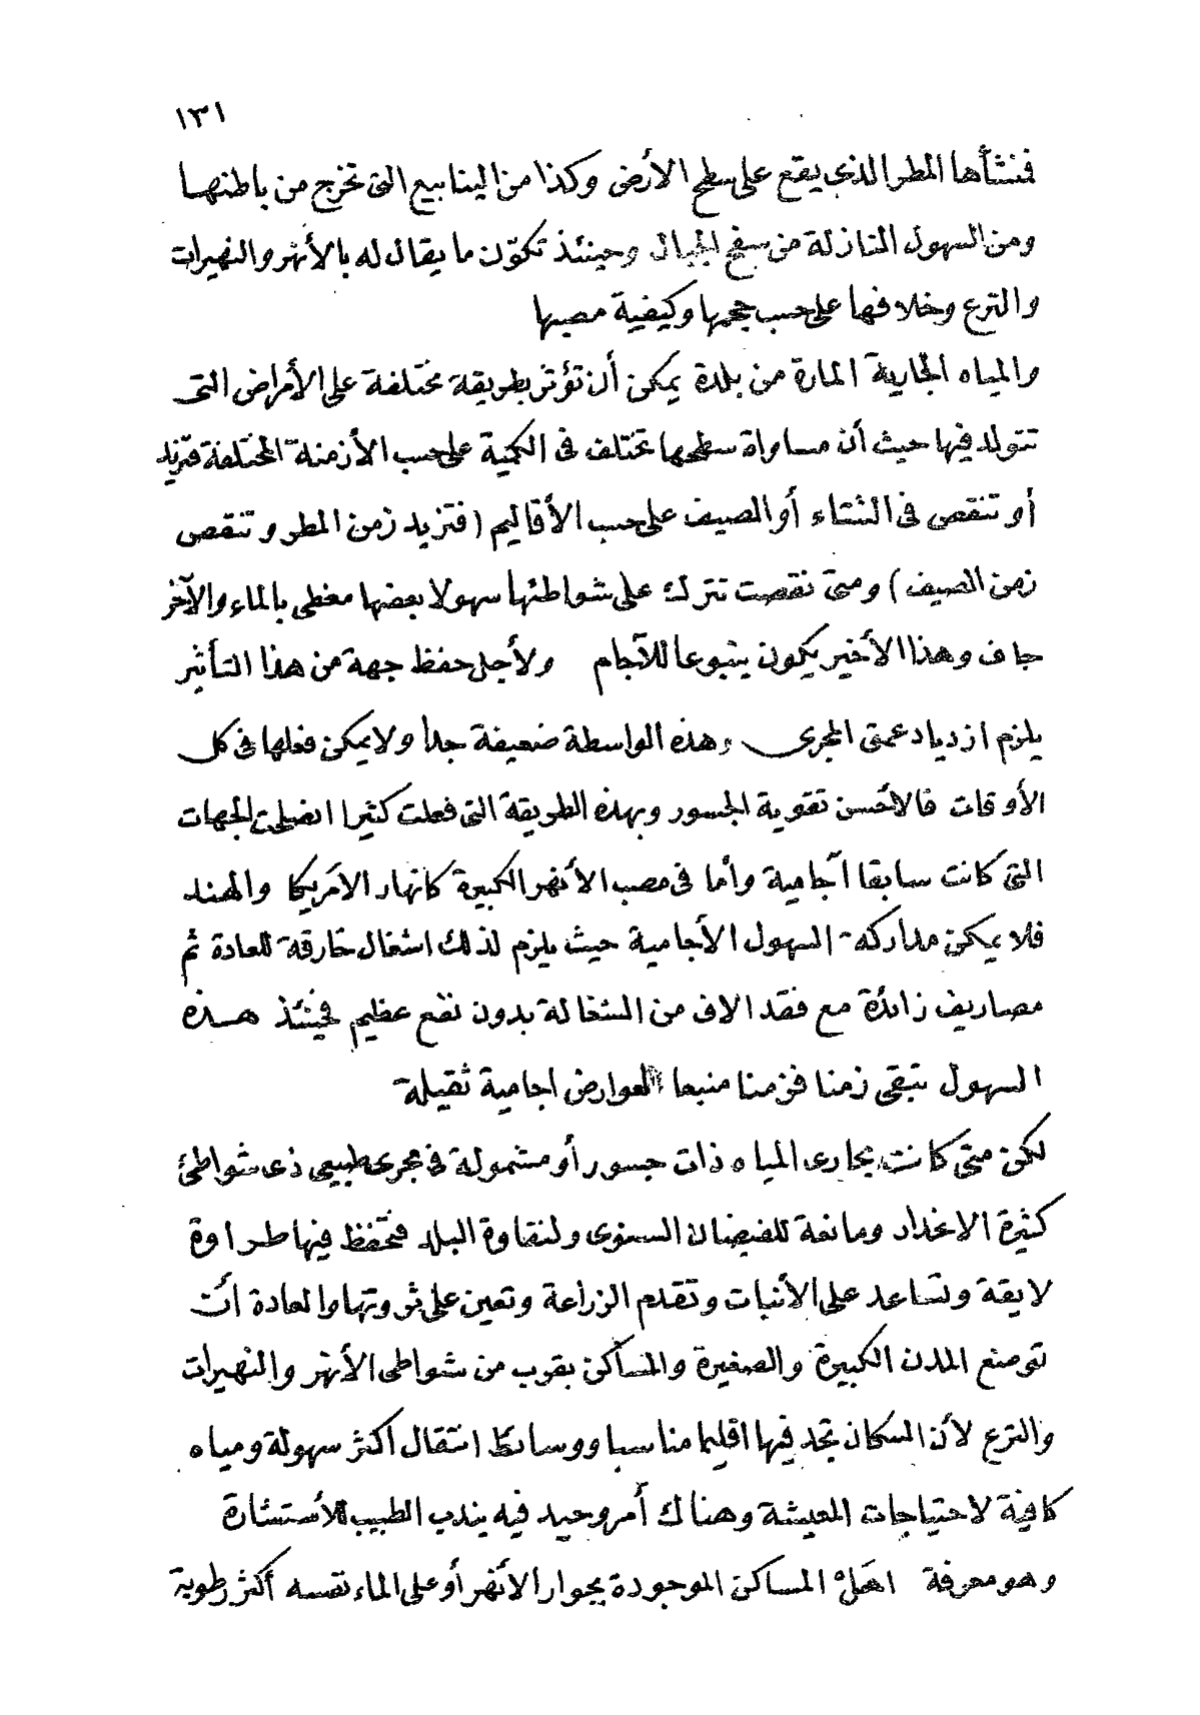 ١٣١
فمنشأها المطر الذي يقع على سطح الأرض وكذا من الينابيع التى تخرج من باطنها
ومن السهول النازلة من سفح الجبال وحينئذ تكوّن ما يقال له بالأنهر والنهيرات
والترع وخلافها على حسب حجمها وكيفية مصبها
والمياه الجارية المارة من بلدة يمكن أن تؤثر بطريقة مختلفة على الأمراض التى
تتولد فيها حيث أن مساواة سطحها تختلف فى الكمية على حسب الأزمنة المختلفة فتزيد
أو تنقص فى الشتاء أو الصيف على حسب الأقاليم (فتزيد زمن المطر وتنقص
زمن الصيف) ومتى نقصت تترك على شواطئها سهولا بعضها مغطى بالماء والآخر
جاف وهذا الأخير يكون ينبوعا للآجام ولأجل حفظ جهة من هذا التأثير
يلزم ازدياد عمق المجرى وهذه الواسطة ضعيفة جدا ولا يمكن فعلها فى كل
الأوقات فالأحسن تقوية الجسور وبهذه الطريقة التى فعلت كثيرا انصلحت الجهات
التى كانت سابقا آجامية وأما فى مصب الأنهر الكبيرة كانهار الأمريكا والهند
فلا يمكن مداركة السهول الأجامية حيث يلزم لذلك اشغال خارقة للعادة ثم
مصاريف زائدة مع فقد الاف من الشغالة بدون نفع عظيم فحينئذ هذه
السهول تبقى زمنا فزمنا منبعا لعوارض اجامية ثقيلة
لكن متى كانت مجارى المياه ذات جسور أو مشمولة فى مجرى طبيعى ذى شواطئ
كثيرة الانحدار ومانعة للفيضان السنوى ولنقاوة البلد فتحفظ فيها طراوة
لايقة وتساعد على الأنبات وتقدم الزراعة وتعين على ثروتها والعادة أن
توضع المدن الكبيرة والصغيرة والمساكن بقرب من شواطى الأنهر والنهيرات
والترع لأن السكان تجد فيها اقليما مناسبا ووسائط انتقال أكثر سهولة ومياه
كافية لاحتياجات المعيشة وهناك أمر وحيد فيه يندب الطبيب للأستشارة
وهو معرفة اهَلْ المساكن الموجودة بجوار الأنهر أو على الماء نفسه أكثر رطوبة